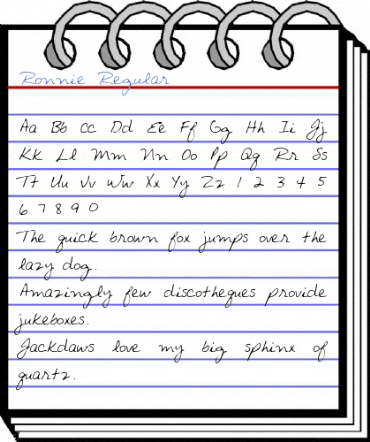 Ronnie Regular
Aa Bb cc Dd Ee Ff Gg Hh Ii Jj
Kk Ll Mm Nn Oo Pp Qq Rr Ss
Tt Uu Vv Ww Xx Yy Zz 1 2 3 4 5
6 7 8 9 0
The quick brown fox jumps over the
lazy dog.
Amazingly few discotheques provide
jukeboxes.
Jackdaws love my big sphinx of
quartz.